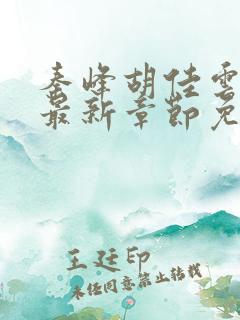 秦峰胡佳雲
最新章節免
王廷印
未经同意禁止转载